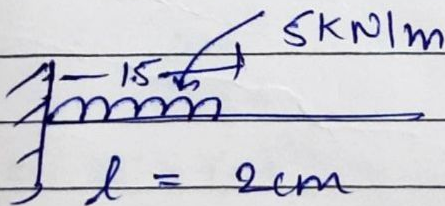 5KN/m
15
l = 2cm